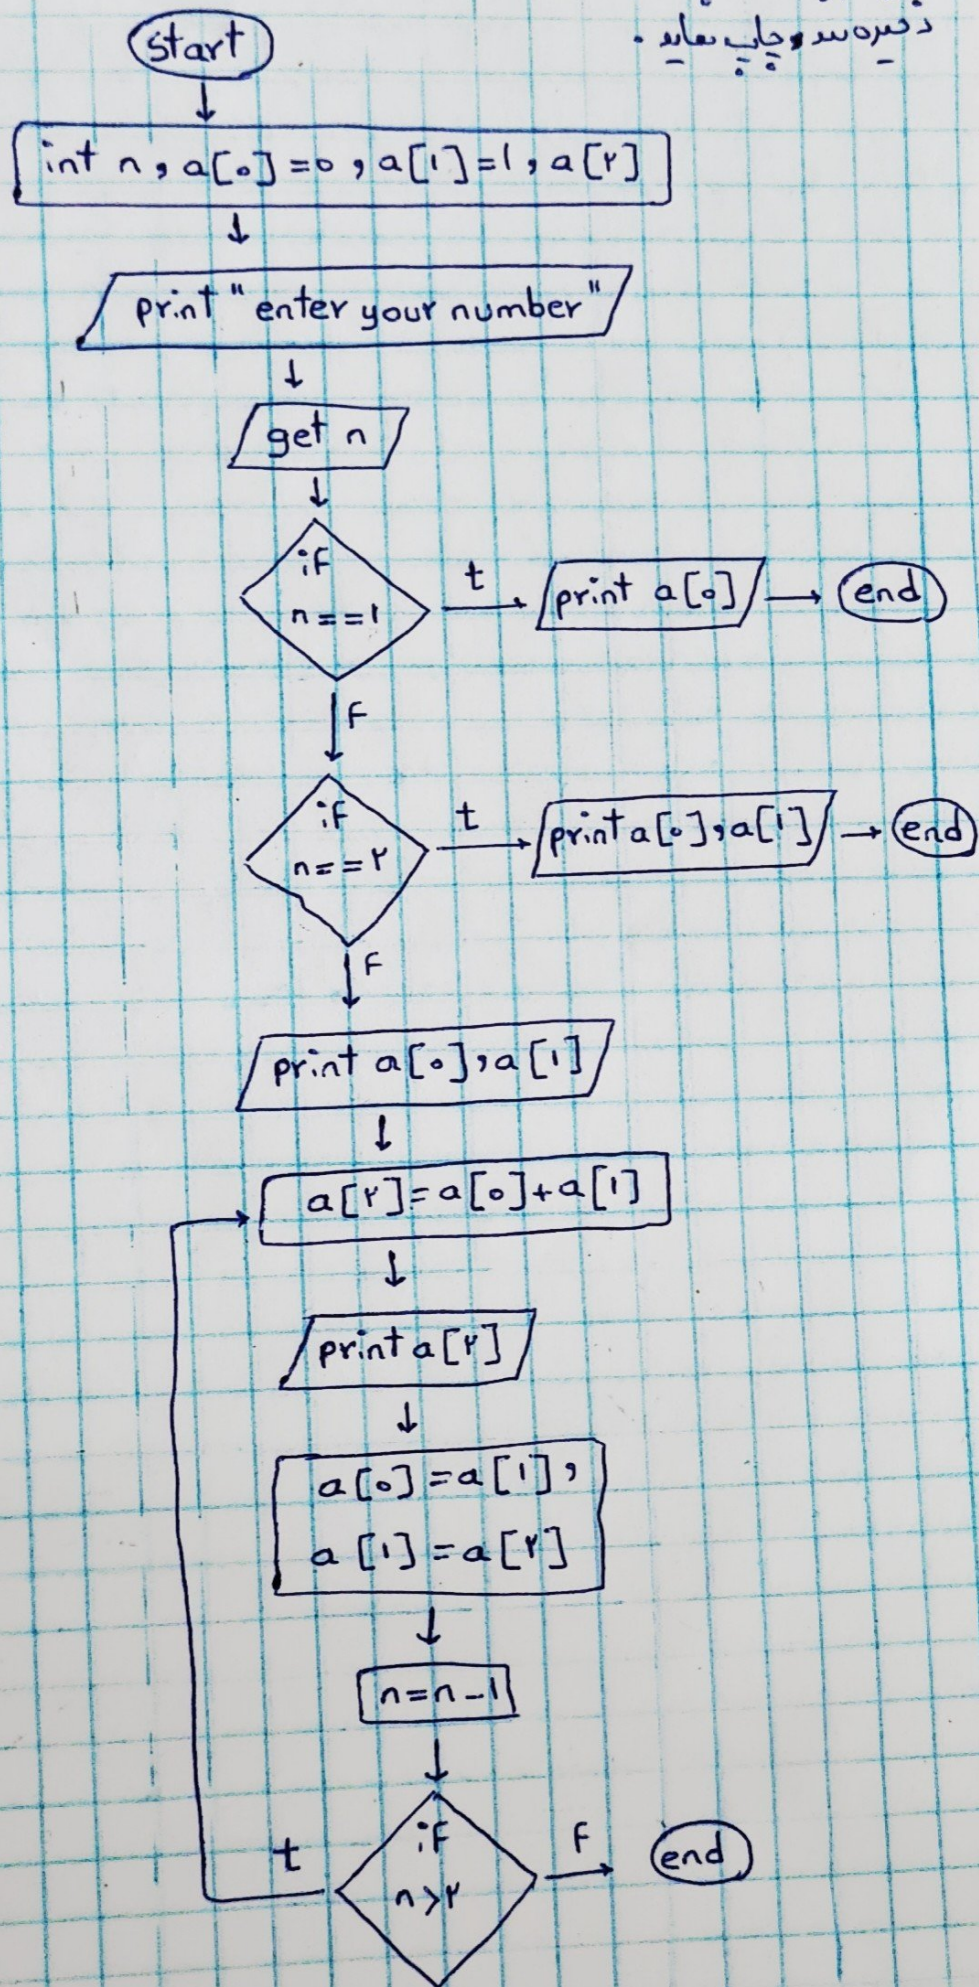 ذخیره شد، چاپ نماید.
start
int n, a[۰]=۰, a[۱]=۱, a[۲]
print "enter your number"
get n
if
n==۱
t
print a[۰]
end
F
if
n==۲
t
print a[۰], a[۱]
end
F
print a[۰], a[۱]
a[۲]=a[۰]+a[۱]
print a[۲]
a[۰]=a[۱],
a[۱]=a[۲]
n=n-۱
if
n>۲
t
F
end